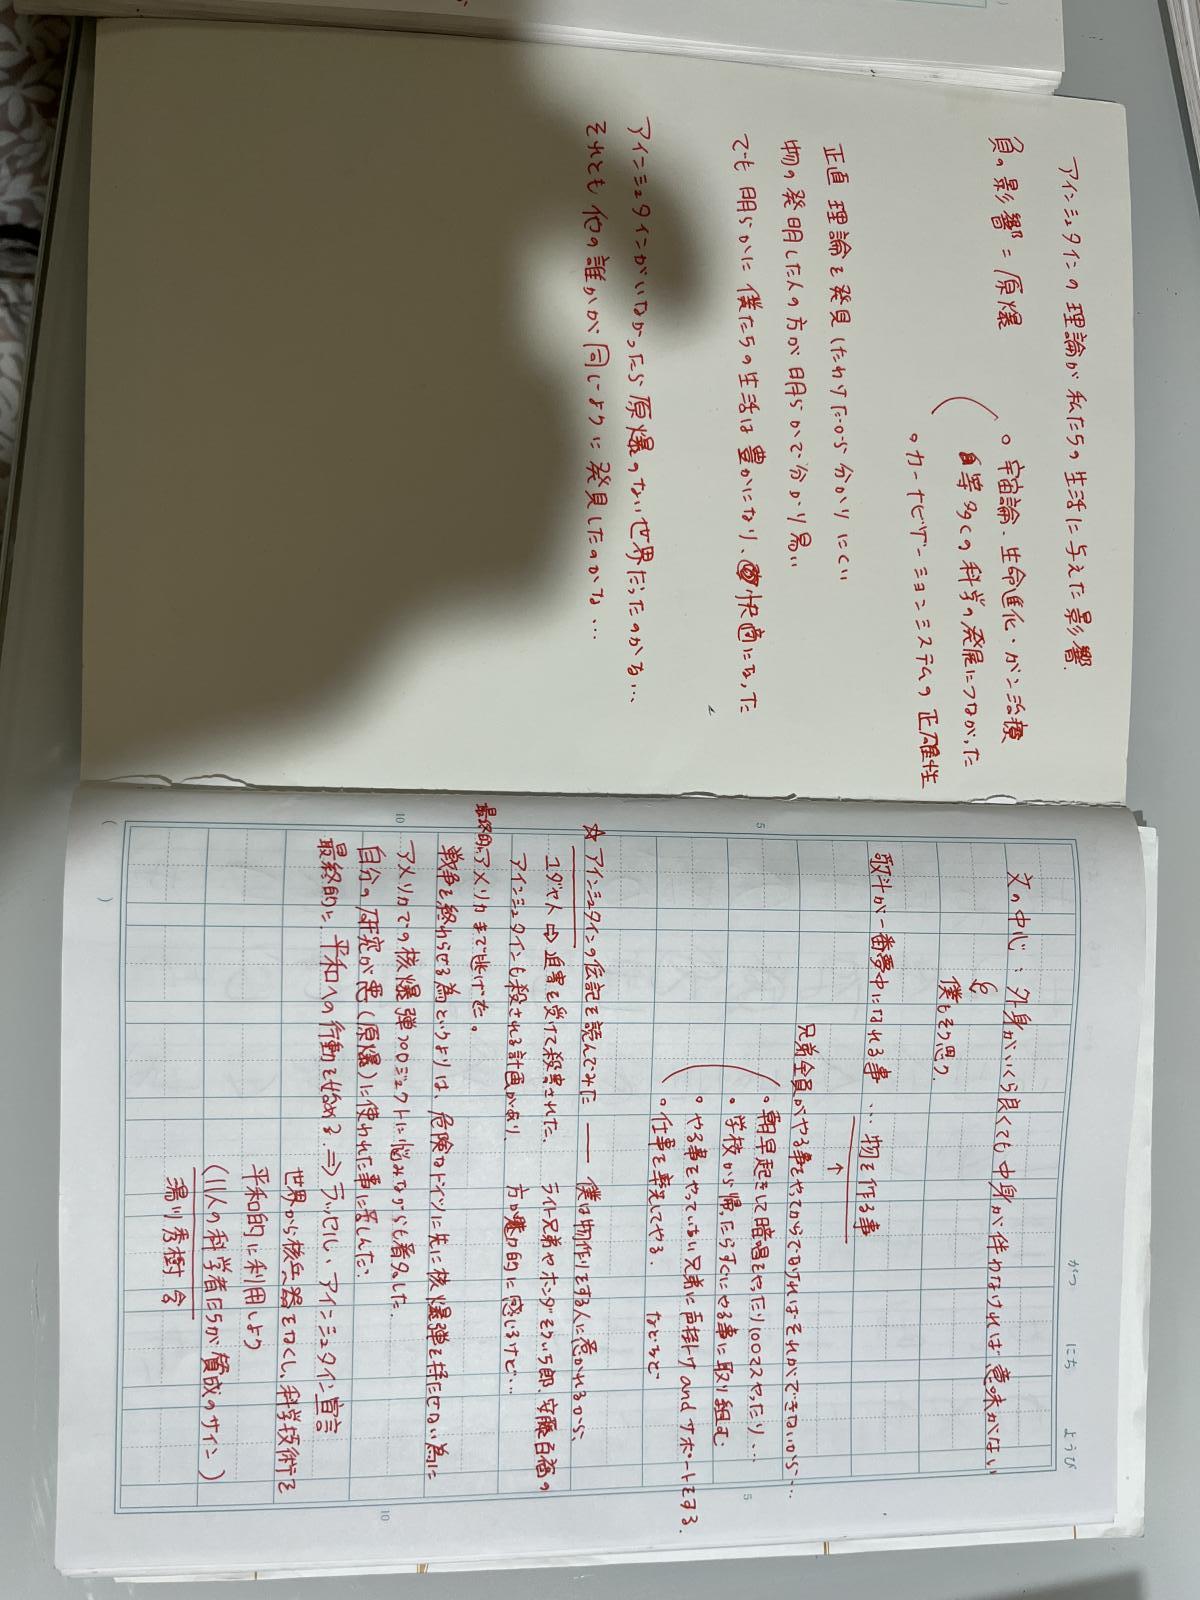 アインシュタインの理論が私たちの生活に与えた影響.
負の影響=原爆
。宇宙論・生命進化・がン治療
等多くの科学の発展につながった
。カーナビゲーションシステムの正確性
正直 理論を発見したわけだから分かりにくい
物の発明した人の方が明らかで分かり易い
でも明らかに僕たちの生活は豊かになり、快適になった
アインシュタインがいなかったら原爆のない世界だったのかな…
それとも他の誰かが同じように発見したのかな…
がつ にち ようび
文の中心:外身がいくら良くても中身が伴わなければ意味がない
僕もそう思う.
一番夢中になれる事…物を作る事
↑
兄弟全員がやる事をやってからでなければそれができないから…
。朝早起きして暗唱をやったり100マスやったり…
。学校から帰ったらすぐにやる事に取り組む.
。やる事をやっていない兄弟に声掛け and サポートをする.
。仕事を率先してやる. などなど
5
5
☆アインシュタインの伝記を読んでみた ― 僕は物作りをする人に惹かれるから、
ライト兄弟やホンダそういち郎、安藤百福の
方が魅力的に感じるけど…
ユダヤ人⇨迫害を受けて殺害された.
アインシュタインも殺される計画があり
最終的にアメリカまで逃げた。
戦争を終わらせる為というよりは、危険なドイツに先に核爆弾を持たせない為に
アメリカでの核爆弾プロジェクトに悩みながらも署名した.
自分の研究が悪(原爆)に使われた事に苦しんだ.
最終的に、平和への行動を始める.⇒ラッセル・アインシュタイン宣言
世界から核兵器をなくし、科学技術を
平和的に利用しよう
(11人の科学者たちが賛成のサイン)
湯川秀樹含
10
10